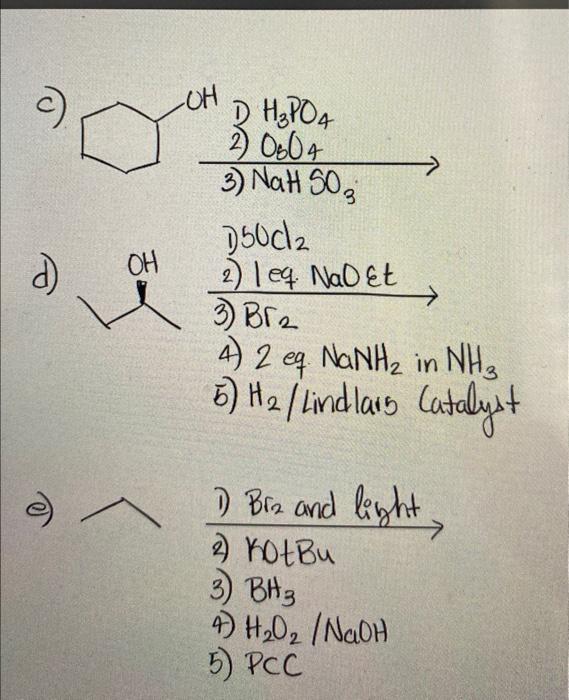 c) OH 1) H₃PO₄
2) OsO₄
3) NaHSO₃
d) OH 1) SOCl₂
2) 1 eq. NaOEt
3) Br₂
4) 2 eq. NaNH₂ in NH₃
5) H₂/Lindlars Catalyst
e) 1) Br₂ and light
2) KOtBu
3) BH₃
4) H₂O₂/NaOH
5) PCC